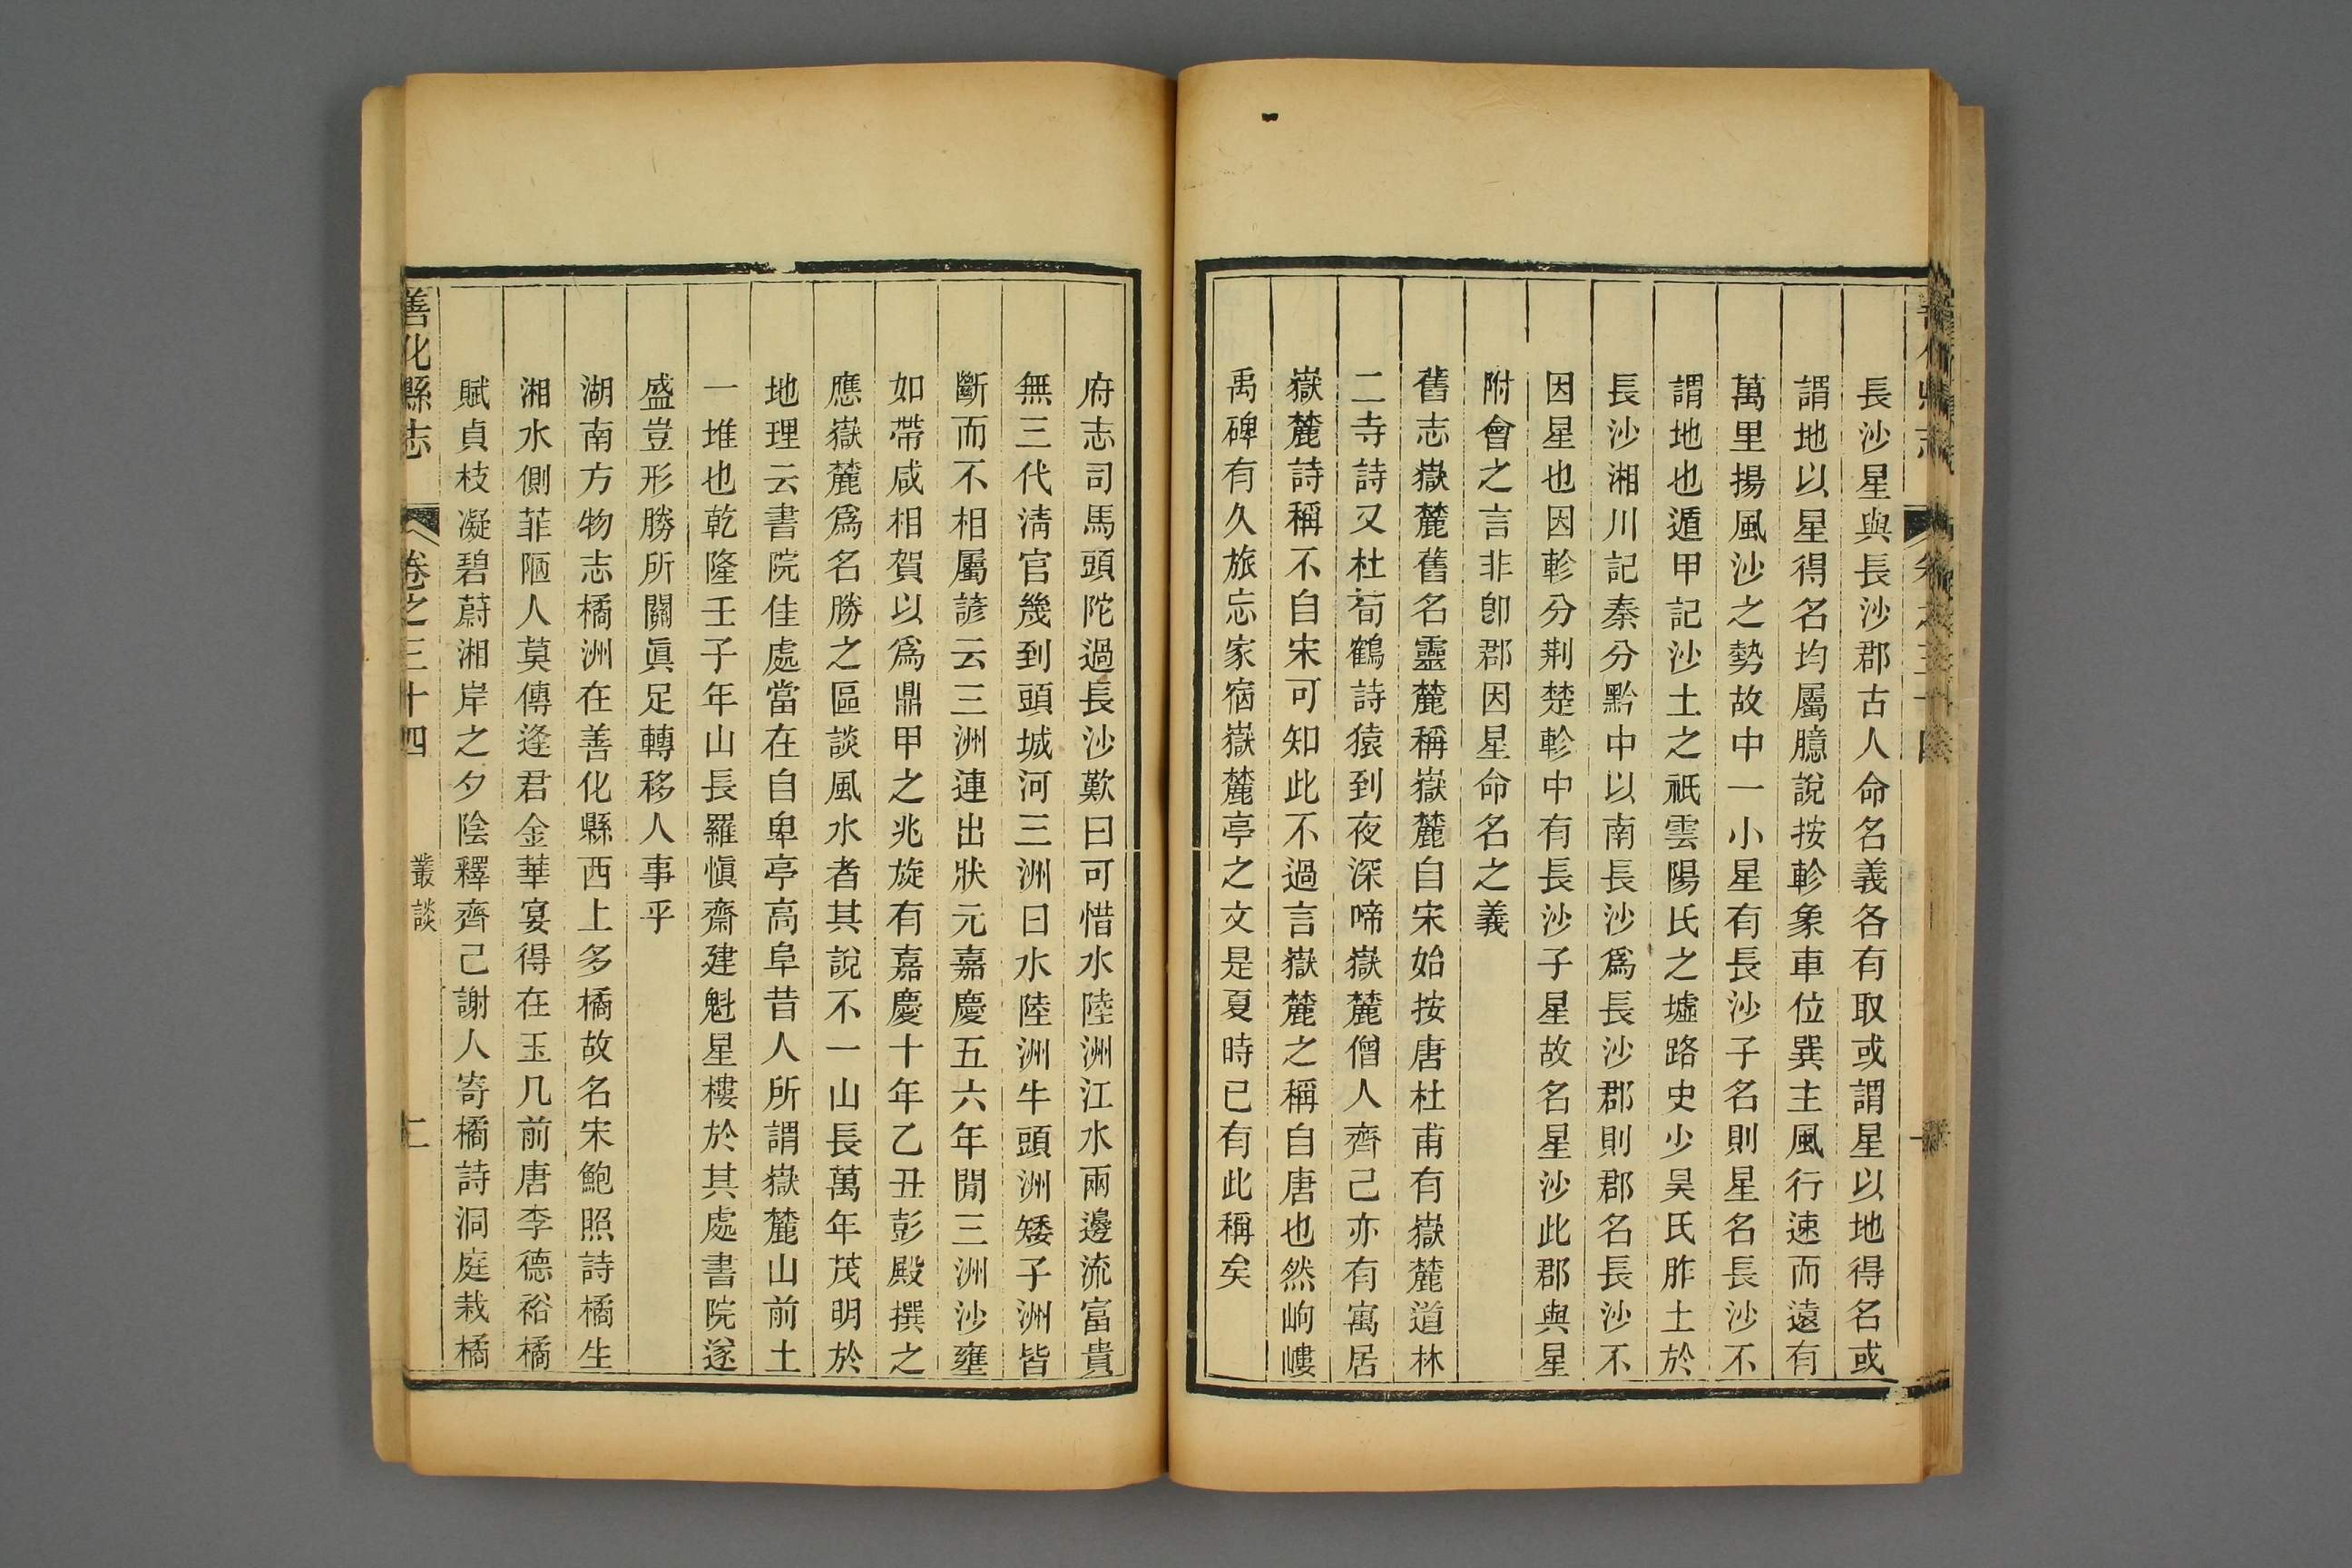 長沙星與長沙郡古人命名義各有取或謂星以地得名或
謂地以星得名均屬臆說按軫象車位巽主風行速而遠有
萬里揚風沙之勢故中一小星有長沙子名則星名長沙不
謂地也遁甲記沙土之祇雲陽氏之墟路史少昊氏胙土於
長沙湘川記秦分黔中以南長沙爲長沙郡則郡名長沙不
因星也因軫分荆楚軫中有長沙子星故名星沙此郡與星
附會之言非卽郡因星命名之義
舊志嶽麓舊名靈麓稱嶽麓自宋始按唐杜甫有嶽麓道林
二寺詩又杜荀鶴詩猿到夜深啼嶽麓僧人齊己亦有寓居
嶽麓詩稱不自宋可知此不過言嶽麓之稱自唐也然岣嶁
禹碑有久旅忘家宿嶽麓亭之文是夏時已有此稱矣
府志司馬頭陀過長沙歎曰可惜水陸洲江水兩邊流富貴
無三代淸官幾到頭城河三洲曰水陸洲牛頭洲矮子洲皆
斷而不相屬諺云三洲連出狀元嘉慶五六年閒三洲沙壅
如帶咸相賀以爲鼎甲之兆旋有嘉慶十年乙丑彭殿撰之
應嶽麓爲名勝之區談風水者其說不一山長萬年茂明於
地理云書院佳處當在自卑亭高阜昔人所謂嶽麓山前土
一堆也乾隆壬子年山長羅愼齋建魁星樓於其處書院遂
盛豈形勝所關眞足轉移人事乎
湖南方物志橘洲在善化縣西上多橘故名宋鮑照詩橘生
湘水側菲陋人莫傳逢君金華宴得在玉几前唐李德裕橘
賦貞枝凝碧蔚湘岸之夕陰釋齊己謝人寄橘詩洞庭栽橘
善化縣志 卷之三十四 叢談 二